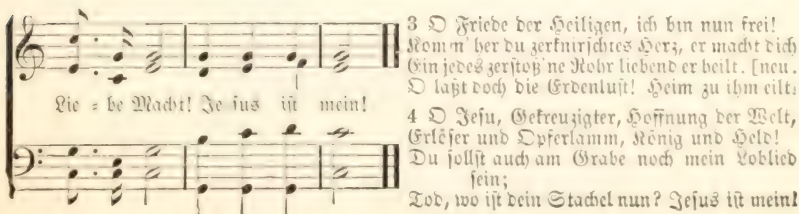 Lie = be Macht! Je sus ist mein!
3 O Friede der Heiligen, ich bin nun frei!
Komm' her du zerknirschtes Herz, er macht dich
Ein jedes zerstoß'ne Rohr liebend er heilt. [neu.
O laßt doch die Erdenlust! Heim zu ihm eilt!
4 O Jesu, Gekreuzigter, Hoffnung der Welt,
Erlöser und Opferlamm, König und Held!
Du sollst auch am Grabe noch mein Loblied
sein;
Tod, wo ist dein Stachel nun? Jesus ist mein!